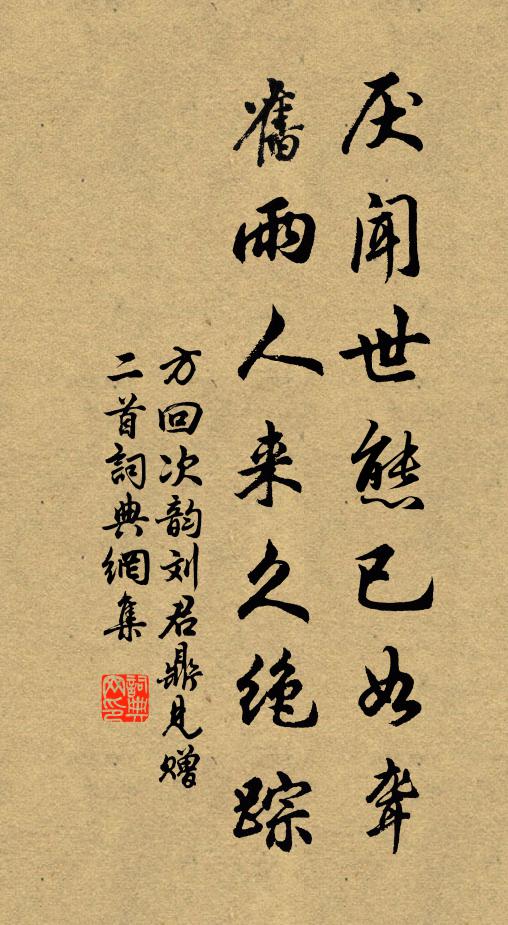 厌闻世態已如聋
舊雨人来久绝踪
方回次韵刘君鼎見赠
二首詞典網集
詞典網印